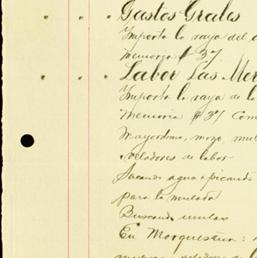 Gastos Grales
Importe la raya del
Memoria # 37
Labor Las Mer
Importe la raya de la
Memoria # 37 Com
Mayordomo, mozo, mul
veladores de labor
Sacando agua y picando
para la mulada
Buscando mulas
En Morquestua: